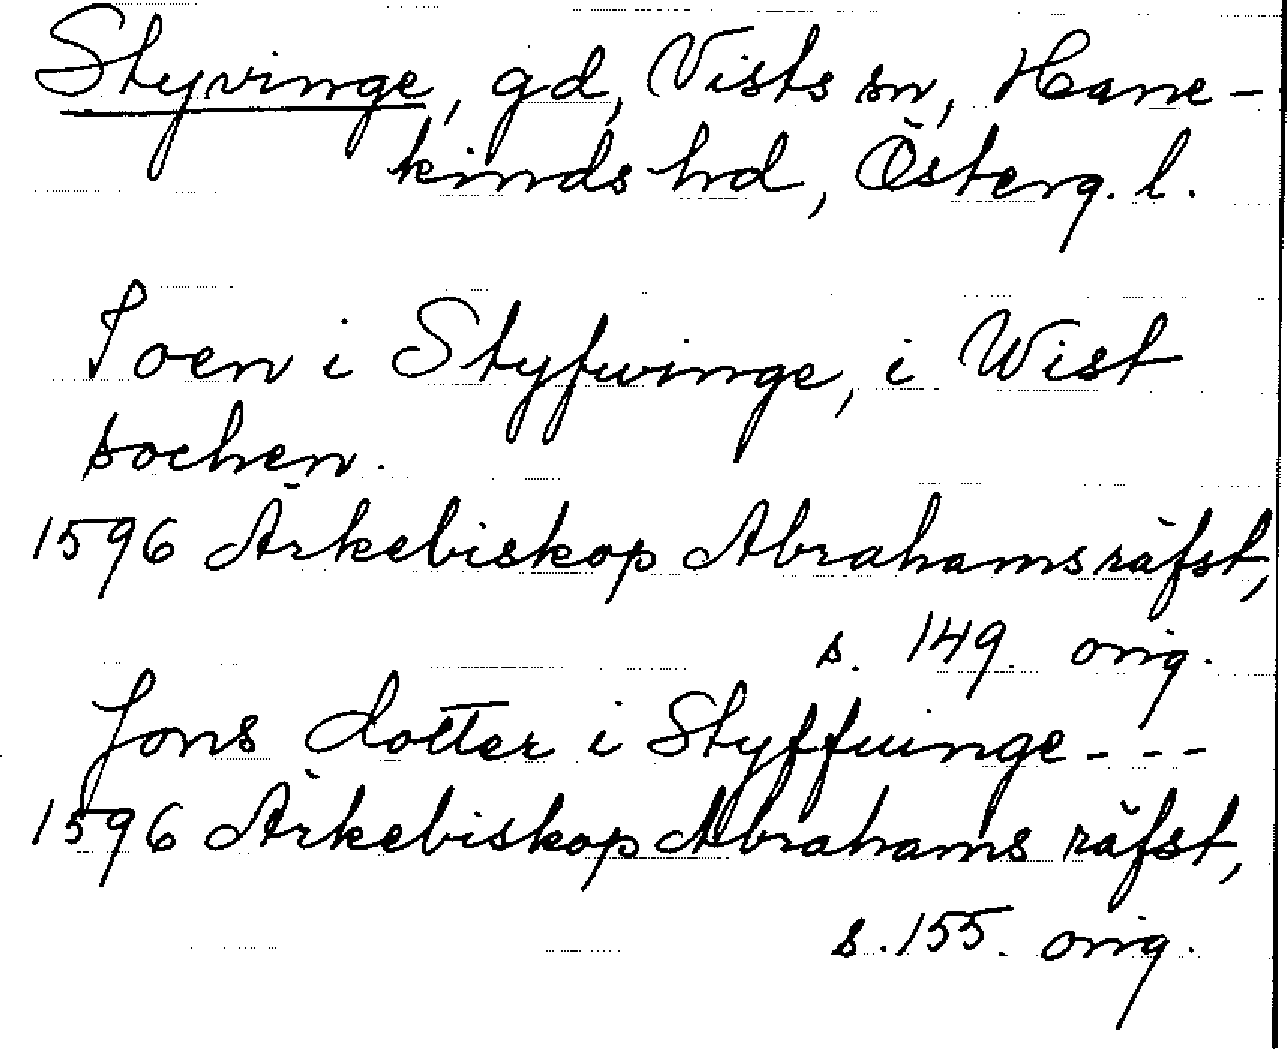 Styvinge, gd, Vists sn, Hane-
kinds hd, Österg. l.
Joen i Styfwinge, i Wist
sochen.
1596 Ärkebiskop Abrahams räfst,
s. 149. orig.
Jons dotter i Styffuinge - - -
1596 Ärkebiskop Abrahams räfst,
s. 155. orig.